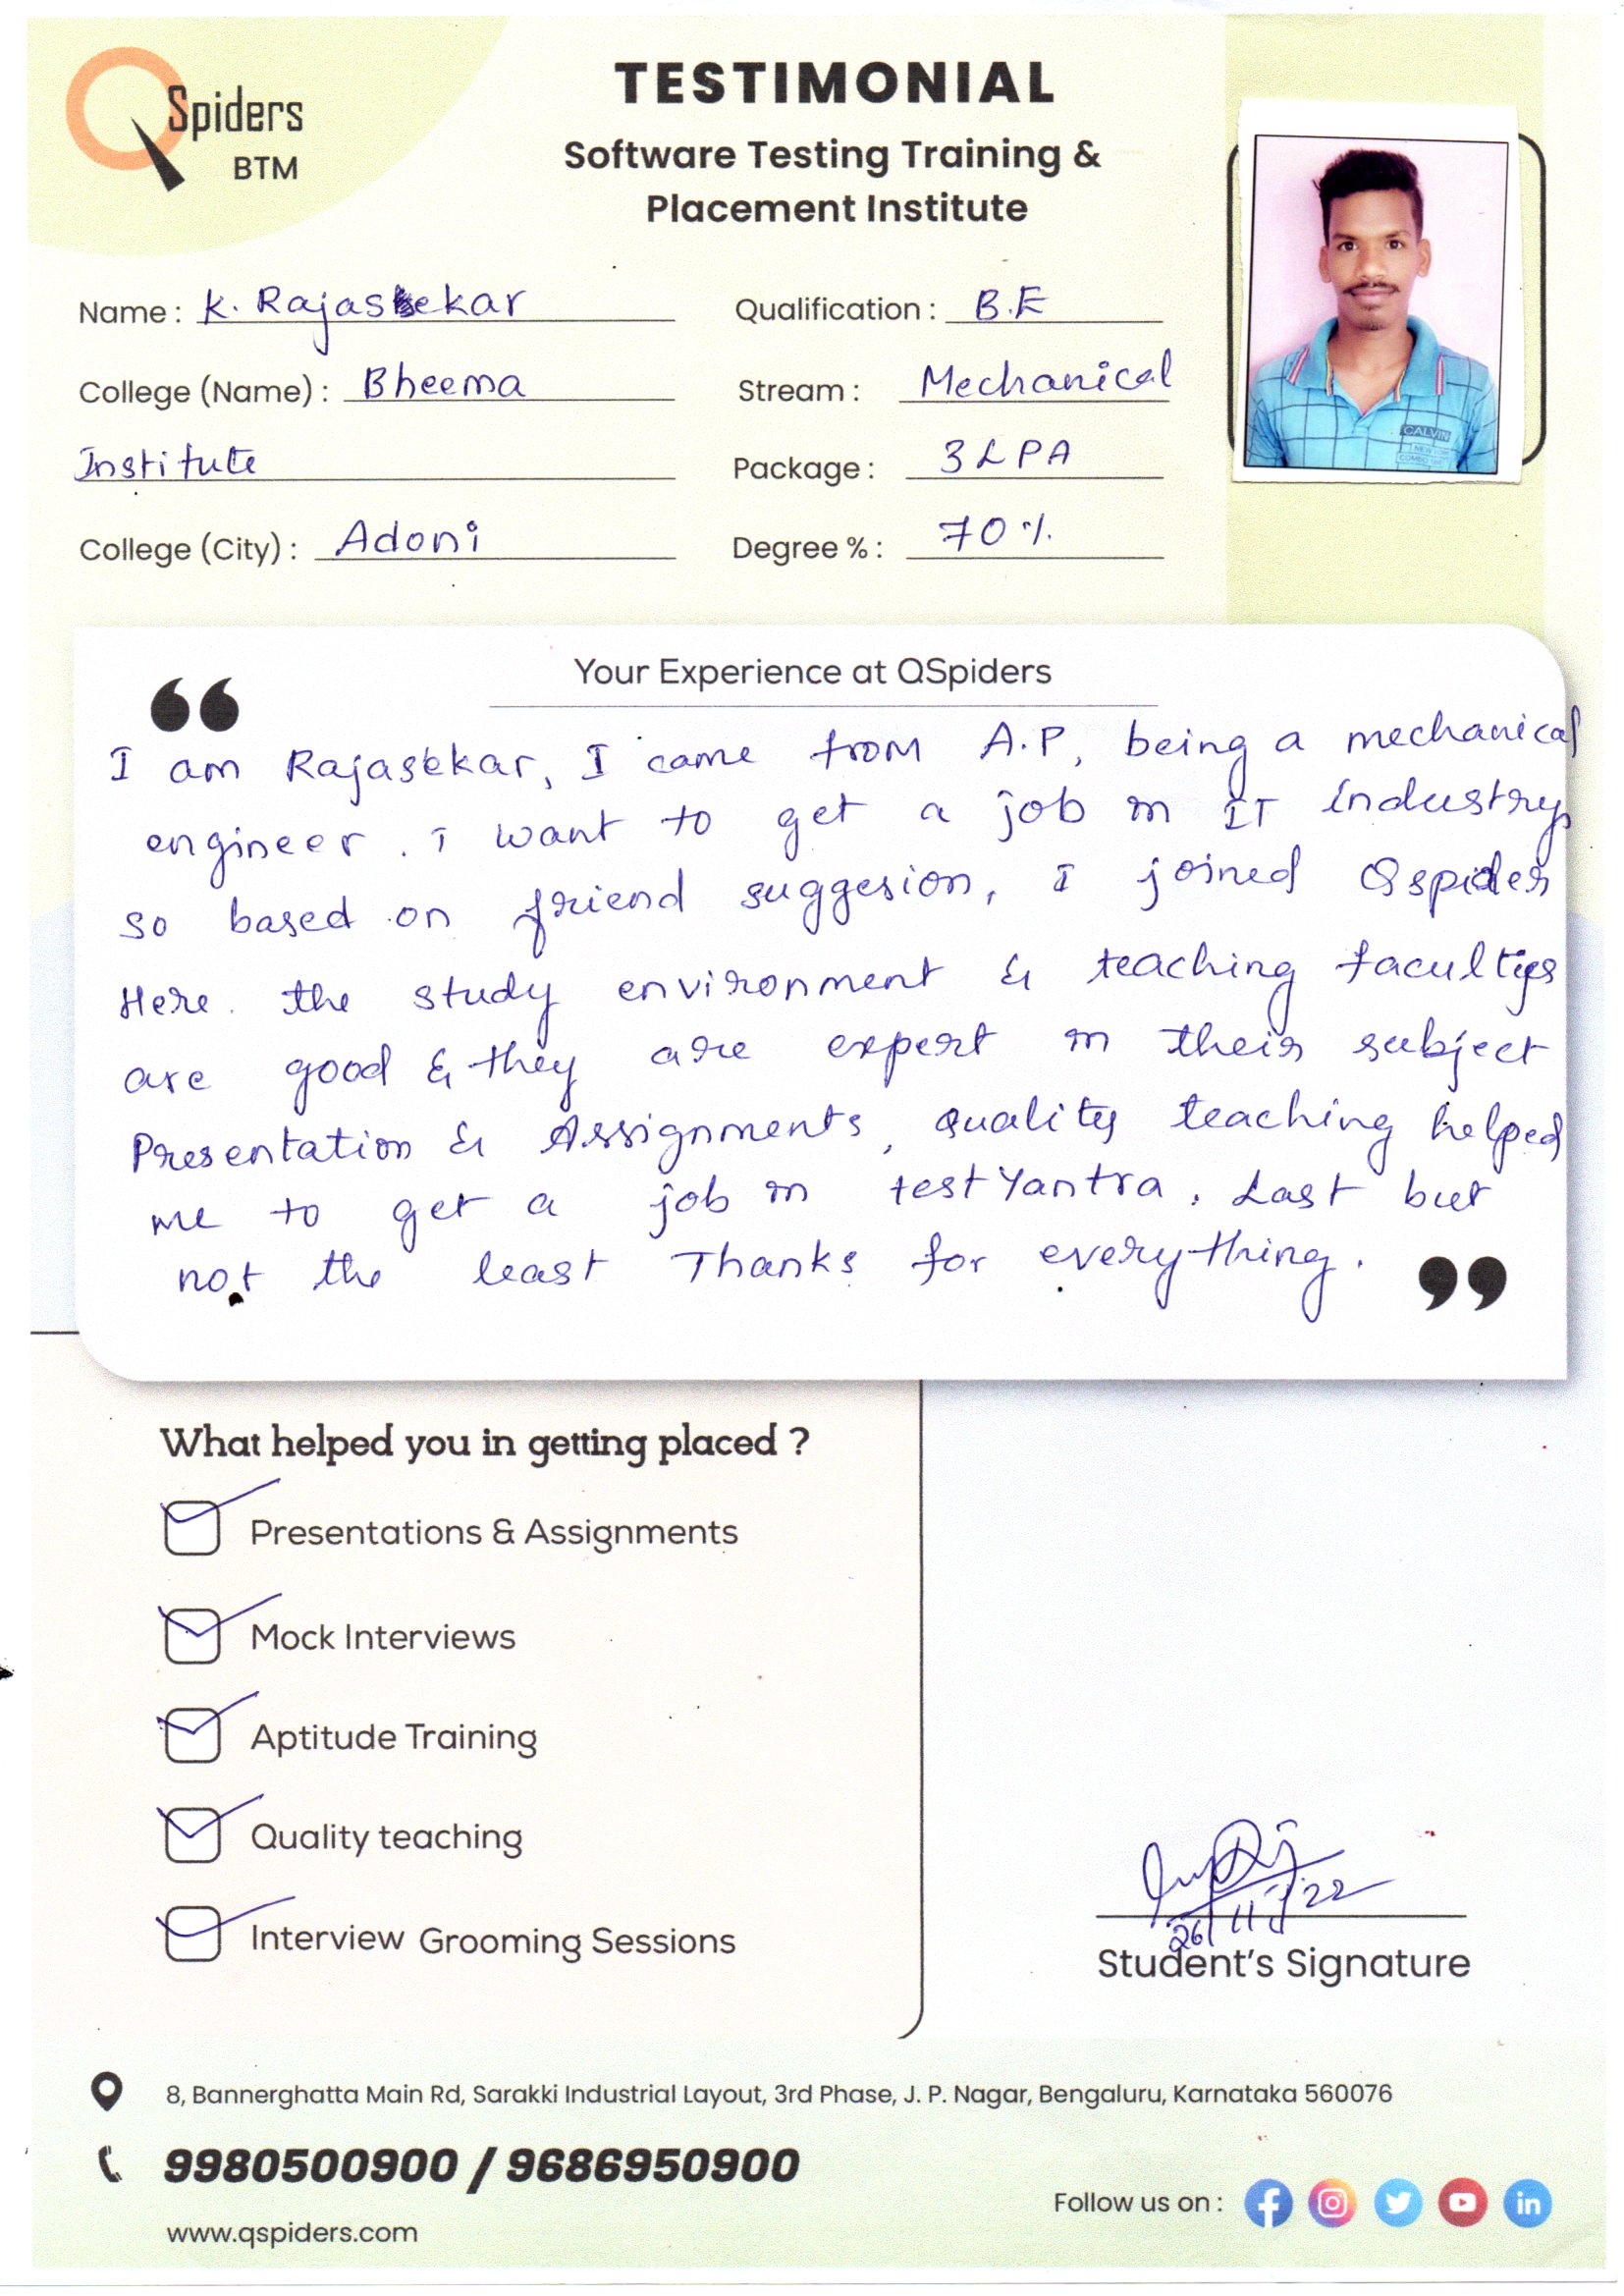 QSpiders
BTM
TESTIMONIAL
Software Testing Training &
Placement Institute
Name : K. Rajasekar
Qualification : B.E
College (Name) : Bheema
Stream : Mechanical
Institute
Package : 3 LPA
College (City) : Adoni
Degree % : 70%
CALVIN
Your Experience at QSpiders
I am Rajasekar, I came from A.P, being a mechanical
engineer. i want to get a job in IT industry,
so based on friend suggesion, I joined Qspider
Here. the study environment & teaching faculties
are good & they are expert in their subject
Presentation & Assignments, quality teaching helped
me to get a job in testYantra. Last but
not the least Thanks for everything.
What helped you in getting placed ?
Presentations & Assignments
Mock Interviews
Aptitude Training
Quality teaching
Interview Grooming Sessions
26/11/22
Student's Signature
8, Bannerghatta Main Rd, Sarakki Industrial Layout, 3rd Phase, J. P. Nagar, Bengaluru, Karnataka 560076
9980500900 / 9686950900
Follow us on :
www.qspiders.com